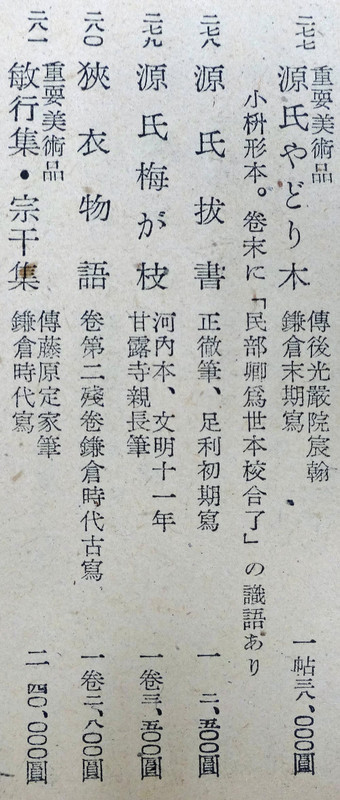 二七七 重要美術品 源氏やどり木 傳後光嚴院宸翰 鎌倉末期寫 一帖 三八、〇〇〇圓
小枡形本。卷末に「民部卿爲世本校合了」の識語あり
二七八 源氏拔書 正徹筆、足利初期寫 一 二、五〇〇圓
二七九 源氏梅が枝 河內本、文明十一年 甘露寺親長筆 一卷 三、五〇〇圓
二八〇 狹衣物語 卷第二殘卷鎌倉時代古寫 一卷 二、八〇〇圓
二八一 重要美術品 敏行集・宗干集 傳藤原定家筆 鎌倉時代寫 二 四〇、〇〇〇圓